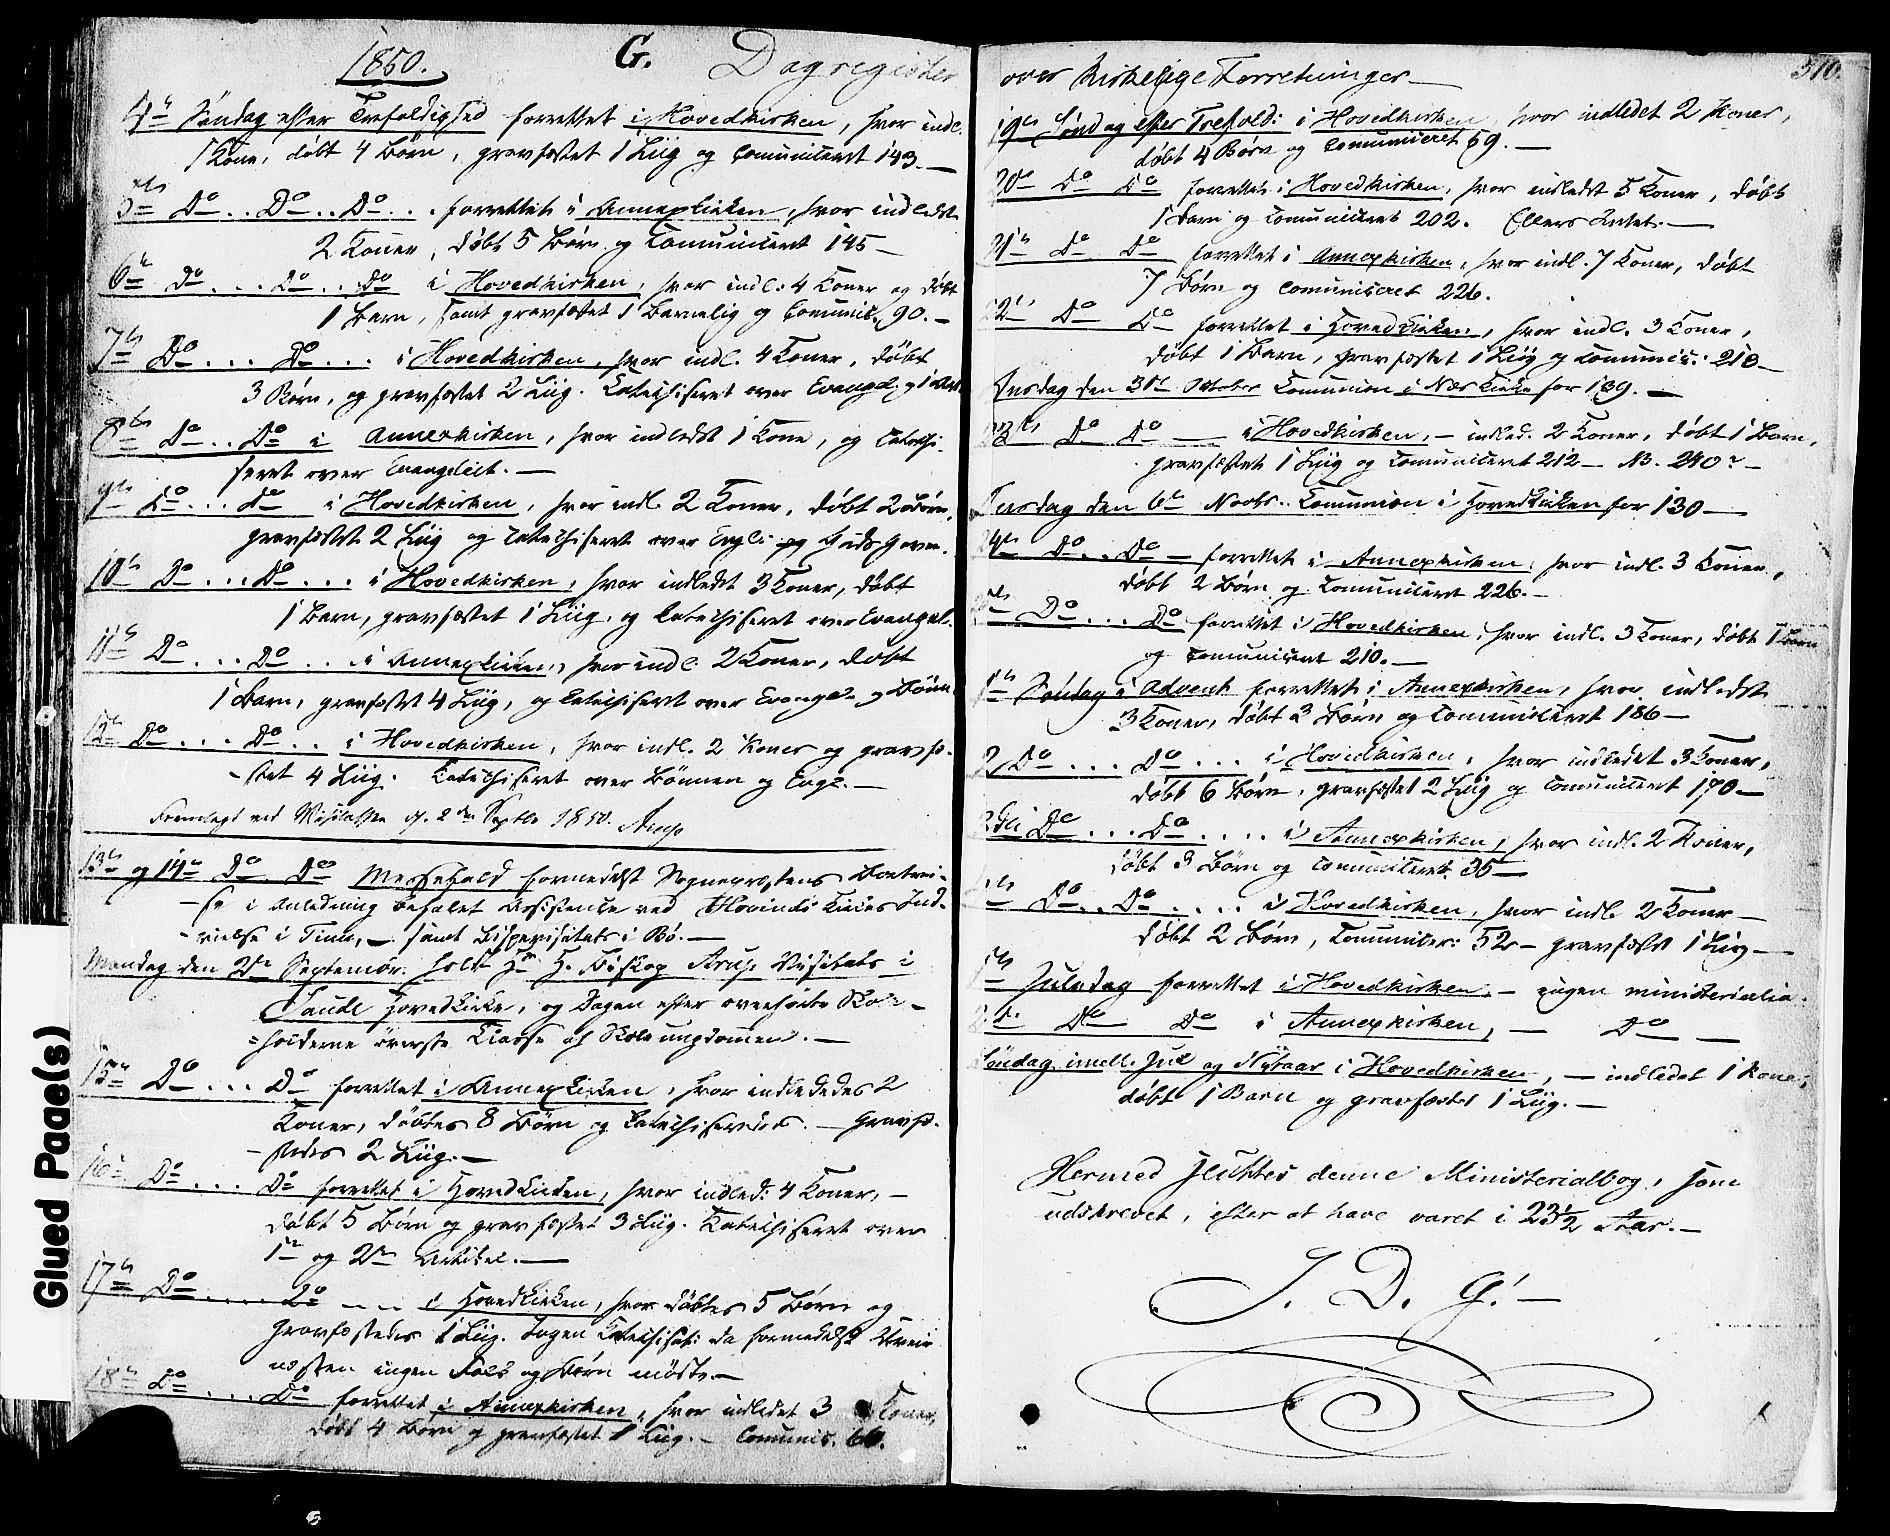 1850.
G. Dagregister
4de Søndag efter Trefoldighed forrettet i Hovedkirken, hvor indl.
1 Kone, døbt 4 Børn, gravfæstet 1 Liig og Comuniceret 143.—
5te Do .. Do .. Do . . . forrettet i Annexkirken, hvor indledet
2 Koner, døbt 5 Børn og Comuniceret 145—
6te Do . . . Do . . Do i Hovedkirken, hvor indl: 4 Koner og døbt
1 Barn, samt gravfæstet 1 Barnelig og Comunic. 90.—
7de Do . . . Do . . . i Hovedkirken, hvor indl. 4 Koner, døbt
3 Børn, og gravfæstet 2 Liig. Catechiseret over Evangel. og 1 Art.
8de Do . . Do i Annexkirken, hvor indledet 1 Kone, og Catechi-
seret over Evangeliet.—
9de Do . . . Do i Hovedkirken, hvor indl. 2 Koner, døbt 2 Børn,
gravfæstet 2 Liig og Catechiseret over Evgl: og Guds
10de Do . . . Do . . . i Hovedkirken, hvor indledet 3 Koner, døbt
1 Barn, gravfæstet 1 Liig, og Catechiseret over Evangel.
11te Do . . . Do . . . i Annexkirken, hvor indl: 2 Koner, døbt
1 Barn, gravfæstet 4 Liig, og Catechiseret over Evangel. og Bønn.
12te Do . . . Do . . i Hovedkirken, hvor indl. 2 Koner og gravfæ-
-stet 4 Liig. Catechiseret over Bønnen og Evgl.—
Fremlagt ved Visitatsen d. 2den Septbr 1850. Arup
13de og 14de Do Do Messefald formedelst Sognepræstens Bortrei-
-se i Anledning befalet Assistence ved Hovinds Kirkes Ind-
-vielse i Tinn, — samt Bispevisitats i Bø.—
Mandag den 2den Septembr. holdt Hr. H. Biskop Arup Visitats i
Saude Hovedkirke, og Dagen efter overhørte Skole-
=holderne øverste Classe af Skoleungdommen.—
15de Do . . . Do forrettet i Annexkirken, hvor indlededes 2
Koner, døbtes 8 Børn og Catechiseredes.— Gravfæ-
-stedes 2 Liig.—
16de Do . . . Do forrettet i Hovedkirken, hvor indled: 4 Koner,—
døbt 5 Børn og gravfæstet 3 Liig. Katechiseret over
1ste og 2den Artikel.—
17de Do . . . . Do — . . i Hovedkirken, hvor døbtes 5 Børn og
Gravfæstedes 1 Liig. Ingen Catechisat: da formedelst Uveir
næsten ingen Folk og Børn mødte.—
18de Do . . . Do forrettet i Annexkirken, hvor indledet 3 Koner,
døbt 4 Børn og gravfæstet 1 Liig.— Comunic. 60.
over kirkelige Forretninger—
310.
19de Søndag efter Trefold: i Hovedkirken, hvor indledet 2 Koner,
døbt 4 Børn og Comuniceret 59.—
20de Do Do forrettet i Hovedkirken, hvor indledet 5 Koner, døbt
1 Barn og Comuniceret 202. Ellers Intet.—
21de Do Do forrettet i Annexkirken, hvor indl. 7 Koner, døbt
7 Børn og Comuniceret 226.
22de Do Do forrettet i Hovedkirken, hvor indl. 3 Koner,
døbt 1 Barn, gravfæstet 1 Liig og Comunic: 218—
Onsdag den 31te Oktober Comunion i Nes Kirke for 139.—
23de Do Do — i Hovedkirken,— indled. 2 Koner, døbt 1 Barn,
gravfæstet 1 Liig og Comuniceret 212—
Onsdag den 6te Novbr. Comunion i Hovedkirken for 130—
24de Do . . Do — forrettet i Annexkirken, hvor indl. 3 Koner,
døbt 2 Børn og Comuniceret 226.—
25de Do . . . Do forrettet i Hovedkirken, hvor indl. 3 Koner, døbt 1 Barn
og Comuniceret 210.—
1ste Søndag i Advent forrettet i Annexkirken, hvor indledet
3 Koner, døbt 3 Børn og Comuniceret 186—
2 Do . . . Do . . . i Hovedkirken, hvor indledet 3 Koner,
døbt 6 Børn, gravfæstet 2 Liig og Comuniceret 170—
3die Do . . . Do . . . . i Annexkirken, hvor indl. 2 Koner,
døbt 3 Børn og Comuniceret 35—
4de Do . . Do . . . . i Hovedkirken, hvor indl. 2 Koner—
døbt 2 Børn, Comunicer: 52— gravfæstet 1 Liig—
1ste Juledag forrettet i Hovedkirken,— ingen ministerialia.
2de Do Do i Annexkirken,— Do —
Søndag imell. Jul og Nytaar i Hovedkirken,— indledet 1 Kone,
døbt 1 Barn og gravfæstet 1 Liig.—
Hermed sluttes denne Ministerialbog, som
udskrevet, efter at have varet i 23½ Aar.—
S. D. G!—
Glued Page(s)